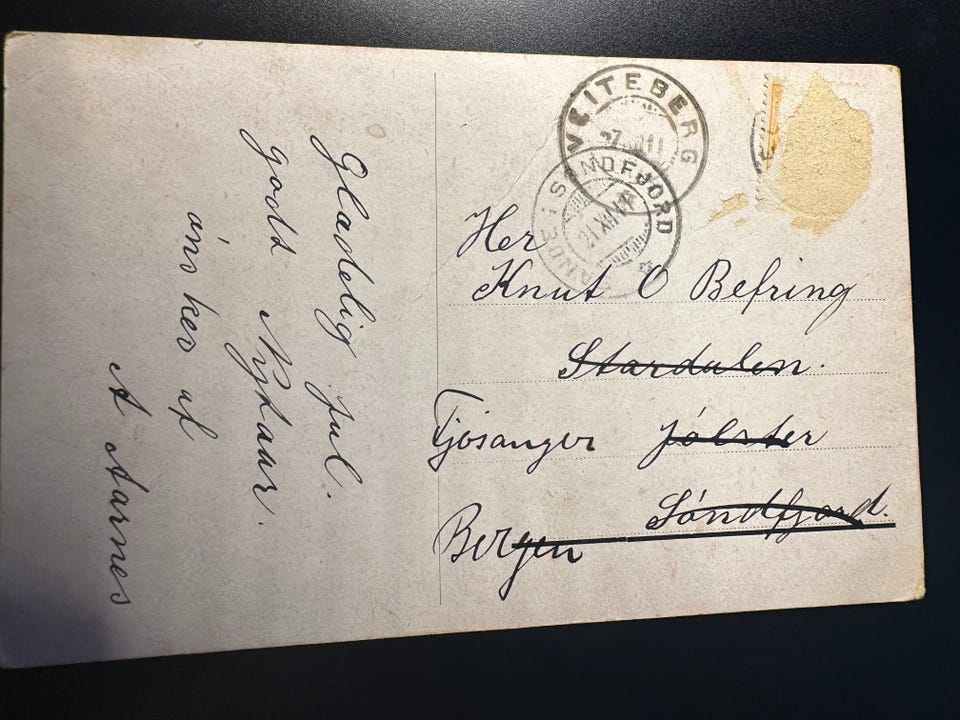 Gladelig jul.
godt Nytaar.
önskes af
A Aarnes
VEITEBERG
SANDE I SØNDFJORD
21 XII
Her
Knut O Befring
Stardalen.
Tjosanger Jölster
Söndfjord.
Bergen